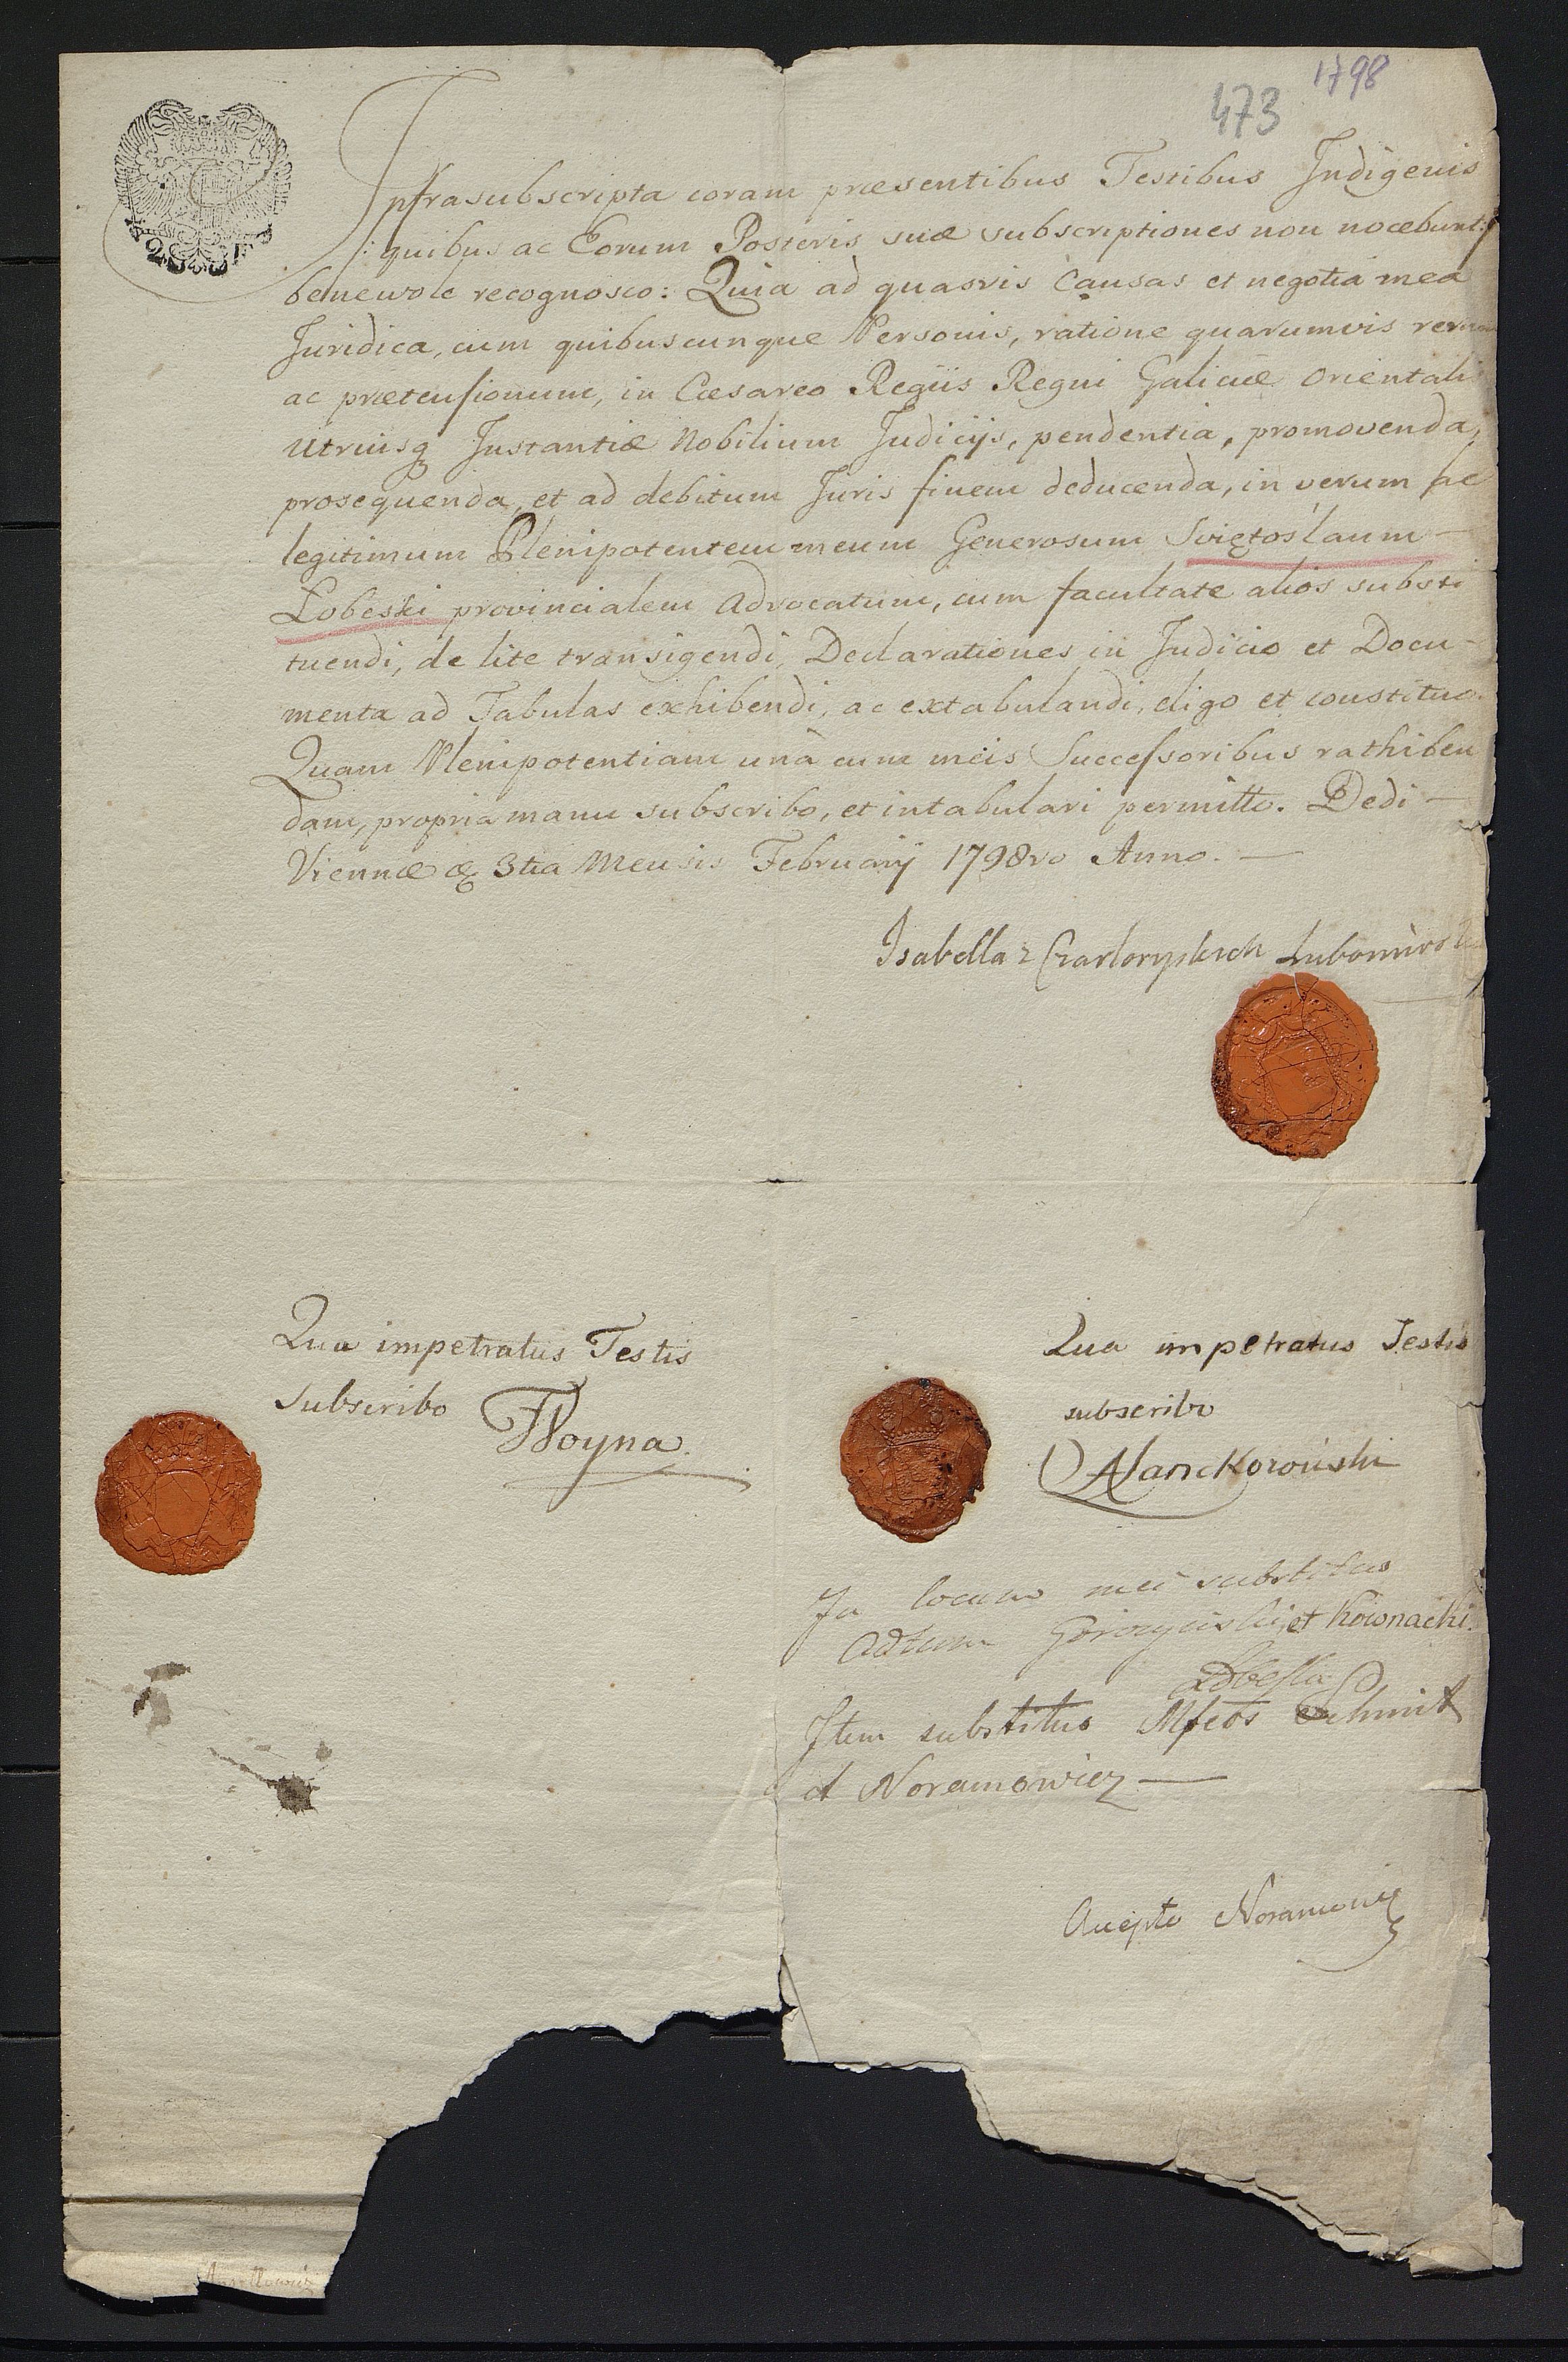 1798
473
Infrasubscripta coram præsentibus Testibus Indigenis
/: quibus ac Eorum Posteris suæ subscriptiones non nocebunt :/
benewole recognosco: Quia ad quasvis Causas et negotia mea
Juridica, cum quibuscunque Personis, ratione quarumvis rerum
ac prætensionum, in Cæsareo Regiis Regni Galiciæ Orientalis
Utriusq Instantiæ Nobilium Judicijs, pendentia, promovenda,
prosequenda, et ad debitum Juris finem deducenda, in verum ac
legitimum Plenipotentem meum Generosum Swiętosłaum
Łobeski provincialem Advocatum, cum facultate alios substi
tuendi, de lite transigendi, Declarationes in Judicio et Docu-
menta ad Tabulas exhibendi, ac extabulandi, eligo et constituo.
Quam Plenipotentiam unà cum meis Successoribus rathiben
dam, propria manu subscribo, et intabulari permitto. Dedi —
Viennæ 3tia Mensis Februarij 1798vo Anno. —
Isabella z Czartoryskich Lubomirska
Qua impetratus Testis
subscribo
FWoyna.
Qua impetratus Testis
subscribo
ALanckoroński
In locum mei substituo
Adtum et Kownacki.
Łobeski
Item substituo Mfcos Schmit
et Noramowicz —
Accepto Noramowicz